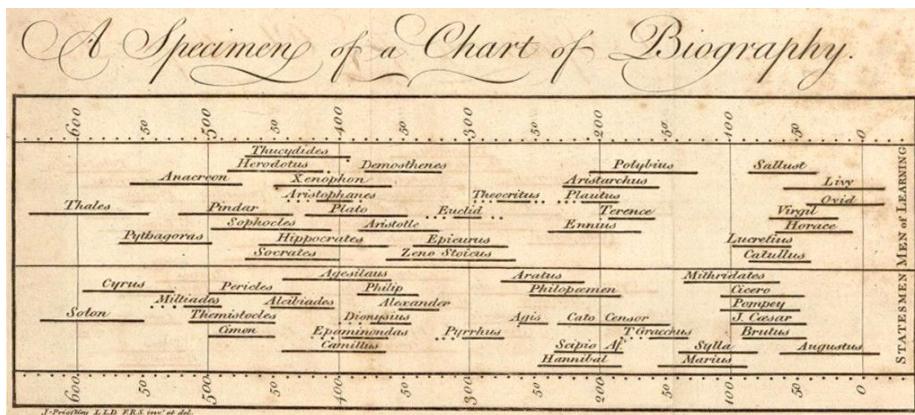 A Specimen of a Chart of Biography.
600 50 500 50 400 50 300 50 200 100 50 0
Thucydides
Herodotus Demosthenes Polybius Sallust
Anacreon Xenophon Aristarchus Livy
Aristophanes Theocritus Plautus Ovid
Thales Pindar Plato Euclid Terence Virgil
Sophocles Aristotle Ennius Horace
Pythagoras Hippocrates Epicurus Lucretius
Socrates Zeno Stoicus Catullus
MEN of LEARNING
Agesilaus Aratus Mithridates
Cyrus Pericles Philip Philopœmen Cicero
Miltiades Alcibiades Alexander Pompey
Solon Themistocles Dionysius Agis Cato Censor J. Cæsar
Cimon Epaminondas Pyrrhus T Gracchus Brutus
Camillus Scipio Af. Sylla Augustus
Hannibal Marius
STATESMEN
600 50 500 50 400 50 300 50 200 50 100 50 0
J. Priestley L.L.D. F.R.S. inv.t et del.